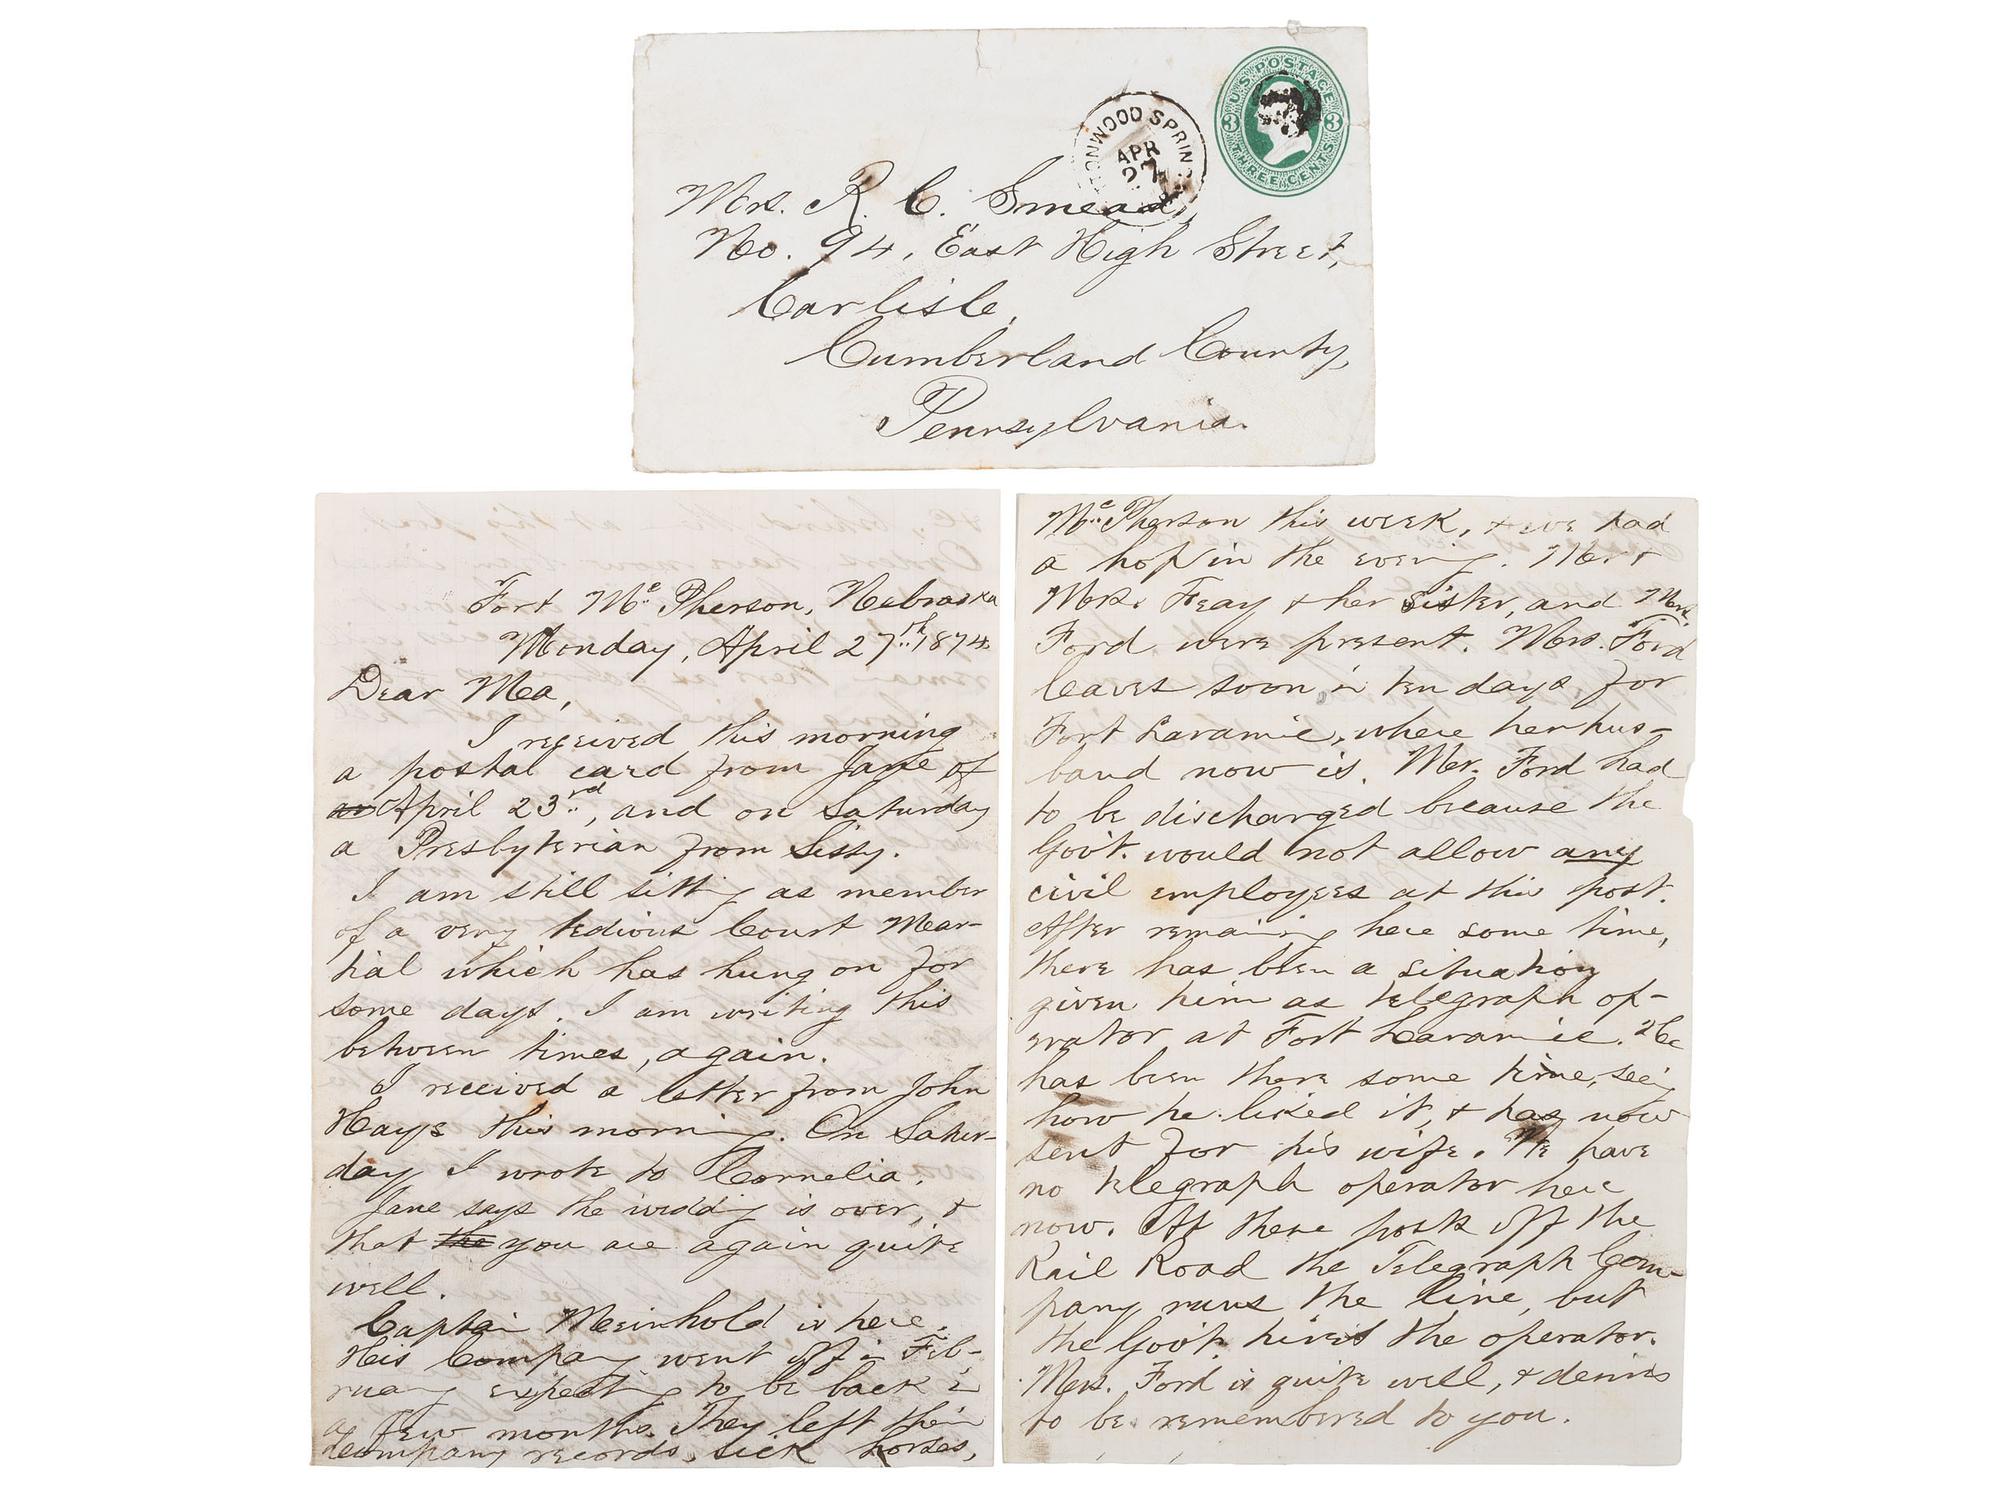 U.S. POSTAGE
3 3
THREE CENTS
TONWOOD SPRIN
APR
27
Mrs. R. C. Smead,
No. 94, East High Street,
Carlisle,
Cumberland County,
Pennsylvania.
Fort McPherson, Nebraska
Monday, April 27th 1874.
Dear Ma,
I received this morning
a postal card from Jane of
April 23rd, and on Saturday
a Presbyterian from Sissy.
I am still sitting as member
of a very tedious Court Mar-
tial which has hung on for
some days. I am writing this
between times, again.
I received a letter from John
Hays this morning. On Satur-
day I wrote to Cornelia.
Jane says the wedding is over, &
that the you are again quite
well.
Captain Meinhold is here.
His Company went off in Feb-
ruary expecting to be back in
a few months. They left their
company records, sick horses,
McPherson this week, & we had
a hop in the evening. Mr. &
Mrs. Feay & her sister, and Mrs.
Ford were present. Mrs. Ford
leaves soon in ten days, for
Fort Laramie, where her hus-
band now is. Mr. Ford had
to be discharged because the
Gov't. would not allow any
civil employees at this post.
After remaining here some time,
there has been a situation
given him as telegraph op-
erator at Fort Laramie. He
has been there some time, seeing
how he liked it, & has now
sent for his wife. We have
no telegraph operator here
now. At these posts off the
Rail Road the Telegraph Com-
pany runs the line, but
the Gov't. hires the operator.
Mrs. Ford is quite well, & desires
to be remembered to you.